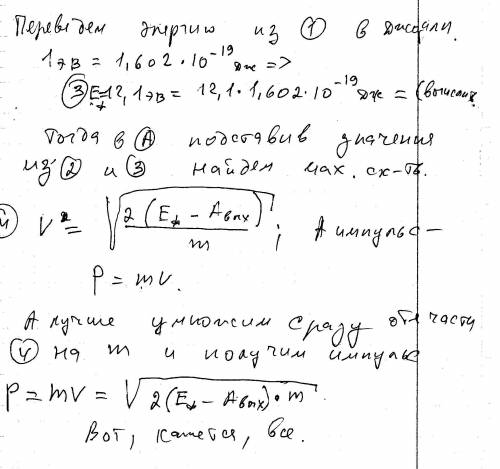 Переведем энергию из ① в джоули.
1 эв = 1,602 · 10⁻¹⁹ дж =>
③ E_ф = 12,1 эв = 12,1 · 1,602 · 10⁻¹⁹ дж = (вычисли
Тогда в Ⓐ подставив значения
из ② и ③ найдем мах. ск-ть.
④ V² = √(2(E_ф - A_вых)/m) ; А импульс -
P = mV.
А лучше умножим сразу обе части
④ на m и получим импульс
P = mV = √(2(E_ф - A_вых) · m).
Вот, кажется, все.